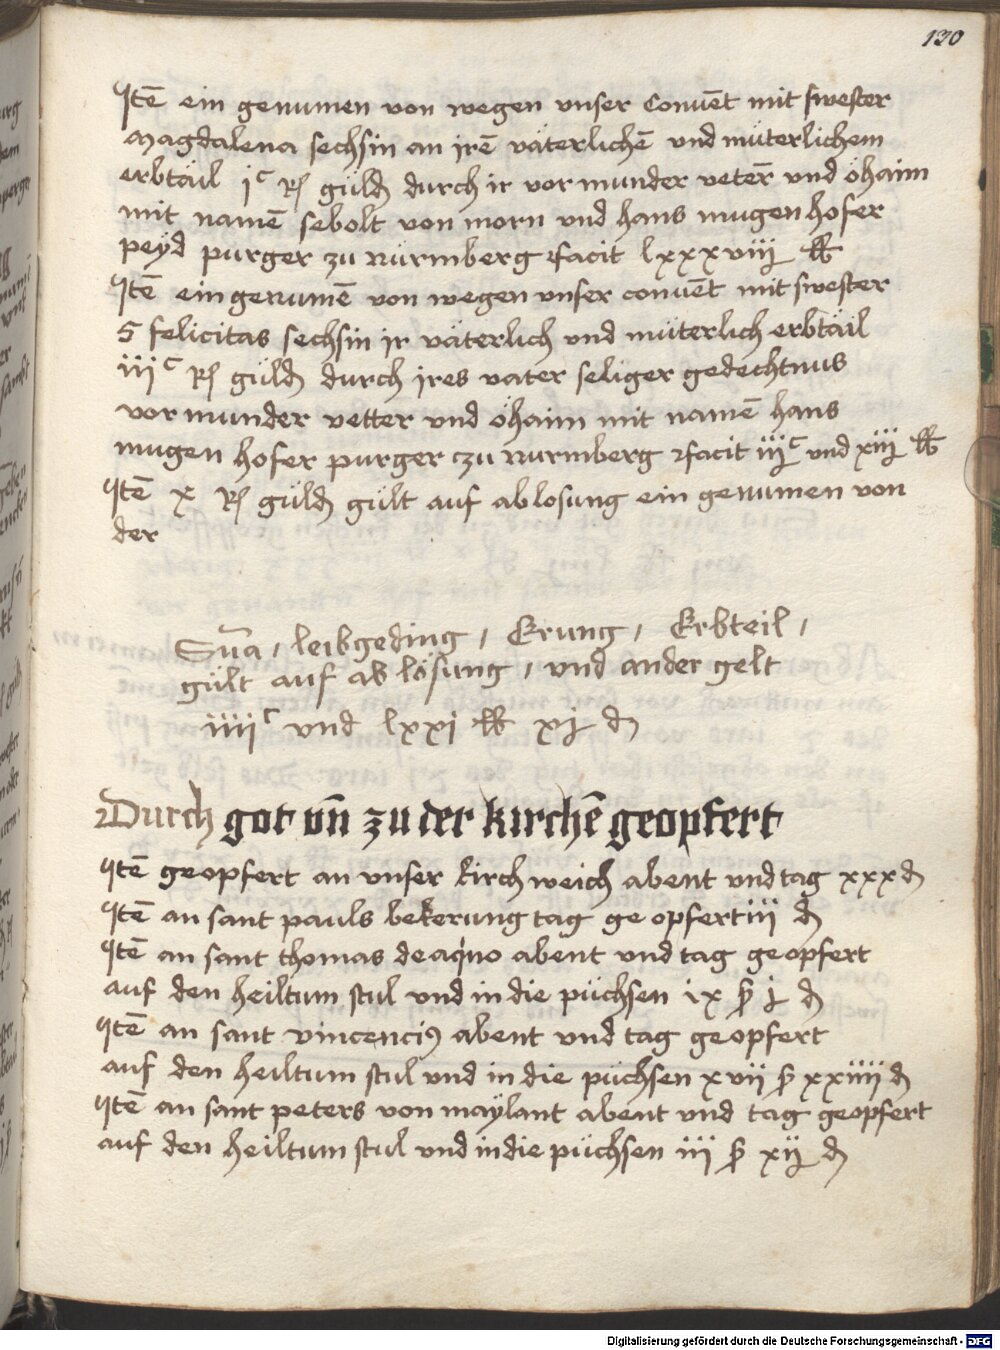 130
Itē ein genumen von wegen unser Convēt mit swester
Magdalena sechsin an irē väterlichē und müterlichem
erbtäil jᶜ R guld durch ir vormunder veter̄ und öhaim
mit namē sebolt von morn und hans mugenhofer
peyd purger zu nürmberg facit lxxxviij ℔
Itē ein genumē von wegen unser convēt mit swester
S felicitas sechsin ir väterlich und müterlich erbtäil
iiiᶜ R güld durch ires vater seliger gedechtnus
vormunder vetter und öhaim mit namē hans
mugen hofer purger czu nurmberg facit iijᶜ und xiij ℔
Itē x R güld gült auf ablosung ein genumen von
der
Sūa / leibgeding / Erung / Erbteil /
gült auf ab lösung / und ander gelt
iiijᶜ und lxxi ℔ xj d
Durch got vn̄ zu der kirchē geopfert
Itē geopfert an unser kirchweich abent und tag xxx d
Itē an sant pauls bekerung tag ge opfert iii d
Itē an sant thomas de aquo abent und tag geopfert
auf den heiltum stul und in die püchsen ix ß j d
Itē an sant vincenciꝯ abent und tag geopfert
auf den heiltum stul und in die püchsen xvii ß xxiiii d
Itē an sant peters von maÿlant abent und tag geopfert
auf den heiltum stul und in die püchsen iii ß xij d
Digitalisierung gefördert durch die Deutsche Forschungsgemeinschaft - DFG